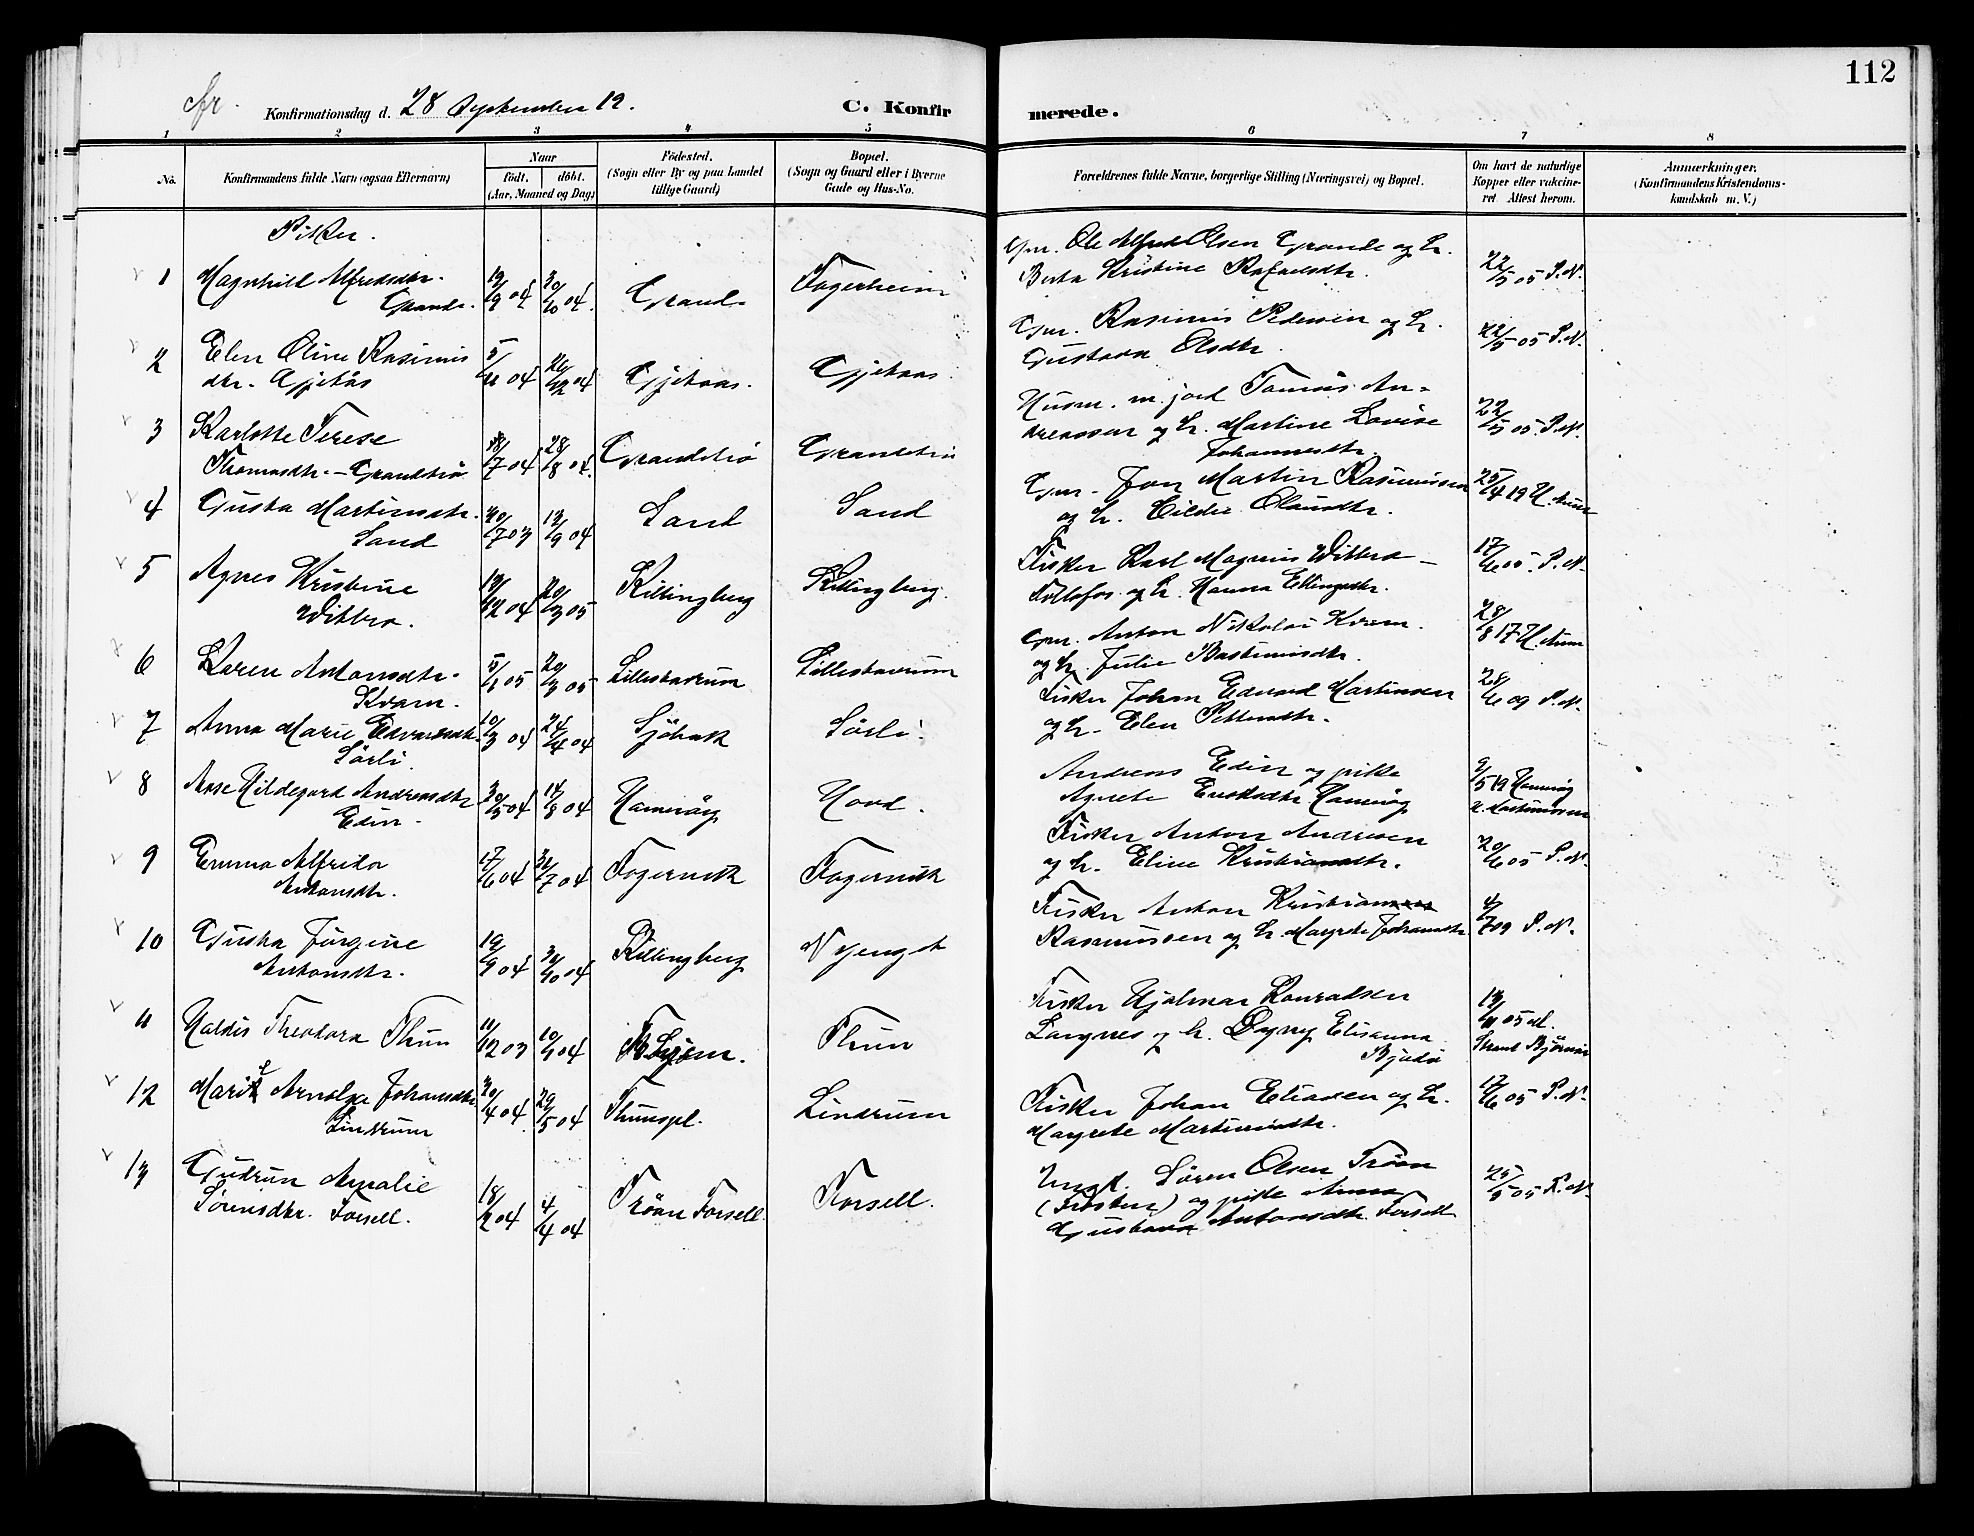 112
Konfirmationsdag d. 28 September 19.
C. Konfirmerede.
1 2 3 4 5 6 7 8
No.
Konfirmandens fulde Navn (ogsaa Efternavn)
Naar
født. døbt.
(Aar, Maaned og Dag)
Fødested.
(Sogn eller By og paa Landet
tillige Gaard)
Bopæl.
(Sogn og Gaard eller i Byerne
Gade og Hus-No.
Forældrenes fulde Navne, borgerlige Stilling (Næringsvei) og Bopæl.
Om havt de naturlige
Kopper eller vakcine-
ret Attest herom.
Anmærkninger.
(Konfirmandens Kristendoms-
kundskab m. V.)
Piker.
1 Magnhild Alfredsdtr.
Grande.
19/9 04 30/10 04. Grande Fagerheim
Gm. Ole Alfred Olsen Grande og h.
Berta Kristine Rafaelsdtr. 22/5 05 P. N.
2 Elen Oline Rasimus
dtr. Gjetås
5/11 04 26/12 04 Gjetaas. Gjetaas.
Gm. Rasimus Pedersen og h.
Gustava Olsdtr. 22/5 05 P. N.
3 Karlotte Terese
Thomasdtr. - Grandetrø
18/7 04 28/8 04. Grandetrø Grandetrø
Husm. m. jord Tomas An=
dreassen og h. Martine Lovise
Johannesdtr. 22/5 05. P. N.
4 Gusta Martinsdtr.
Sand
30/7 03 13/9 04 Sand Sand
Gm. Jon Martin Rasmussen
og h. Olausdtr. 25/4 19 H.
5 Agnes Kristine
Wittsø.
19/12 04 20/3 05 Killingberg Killingberg.
Fisker Karl Magnus Wittsø -
og h. Hanna Ellingsdtr. 17/6 05. P. N.
6 Karen Antonsdtr.
Kvam.
5/1 05 20/3 05 Lillestavrum Lillestavrum
Gm. Anton Nikolai Kvam.
og h. Julie Bastiansdtr. 28/8 17 H.
7 Anna Marie Edvardsdtr.
Sørli.
10/3 04 24/4 04 Sjöbak Sørli.
Fisker Johan Edvard Martinsen
og h. Elen Pettersdtr. 28/6 09 P. N.
8 Aase Hildegard Andreasdtr.
Edin.
30/5 04 14/8 04 Hamnvåg Hovd.
Andreas Edin og pike
Agnete Hamnvåg 9/5 19 Hamnvåg
9 Emma Alfrida
Antonsdtr.
17/6 04 31/7 04 Fagervik Fagervik
Fisker Anton Andresen
og h. Eline Kristiansdtr. 20/6 05 P. N.
10 Gusta Jørgine
Antonsdtr.
19/9 04 30/10 04 Killingberg Nyenget
Fisker Anton Kristiansen
Rasmussen og h. Magrete Johansdtr. 4/7 09 P. N.
11 Haldis Theodora Thun
11/12 03 10/1 04 Thun
Fisker Hjalmar Konradsen
Langnes og h. Dagny Elisanna
Bjadø
13/11 05 M.
Strand Bjørnør
12 Marit Arnolda Johansdtr.
Lindrum
30/4 04. 29/5 04 Thunspl. Lindrum
Fisker Johan Eliasen og h.
Magrete Martinusdtr. 17/6 05 P. N.
13 Gudrun Amalie
Sørensdtr. Forsell.
18/2 04 4/4 04 Trøan Forsell. Forsell.
Ungk. Søren Olsen Trøan
(Fosten) og pike Anna
Gustava Antonsdtr. Forsell 25/5 05 P. N.